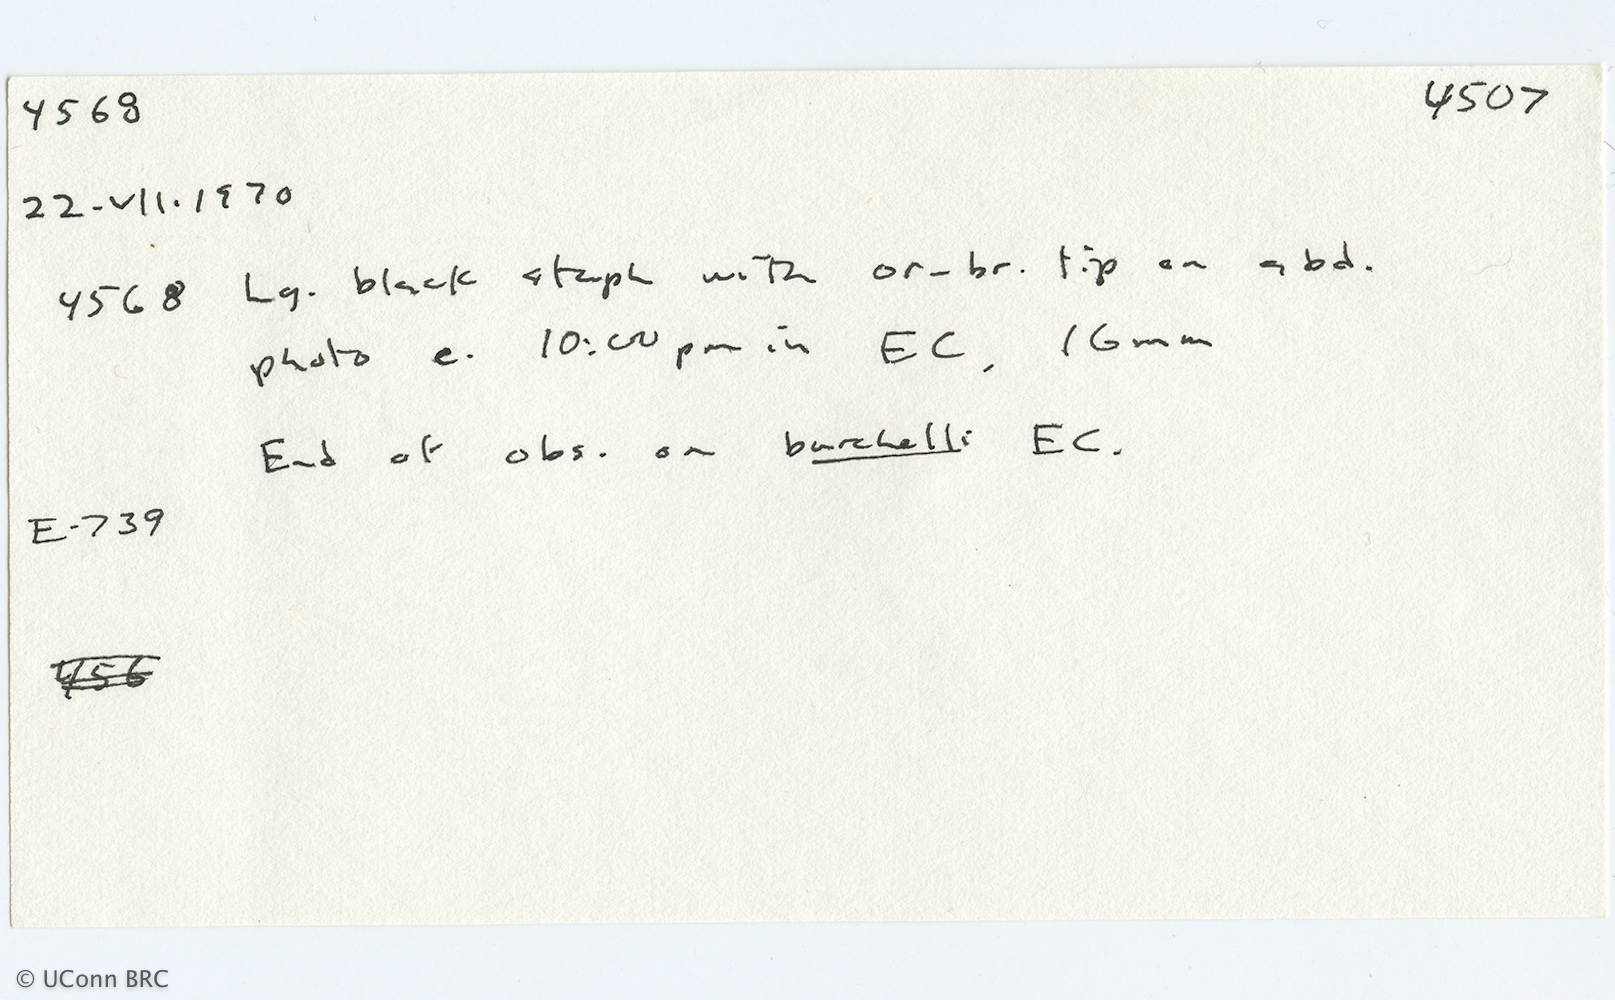 4568 4507
22-VII.1970
4568 Lg. black staph with or-br. tip on abd.
photo e. 10:00 pm in EC, 16mm
End of obs. on burchelli EC.
E-739
456
© UConn BRC